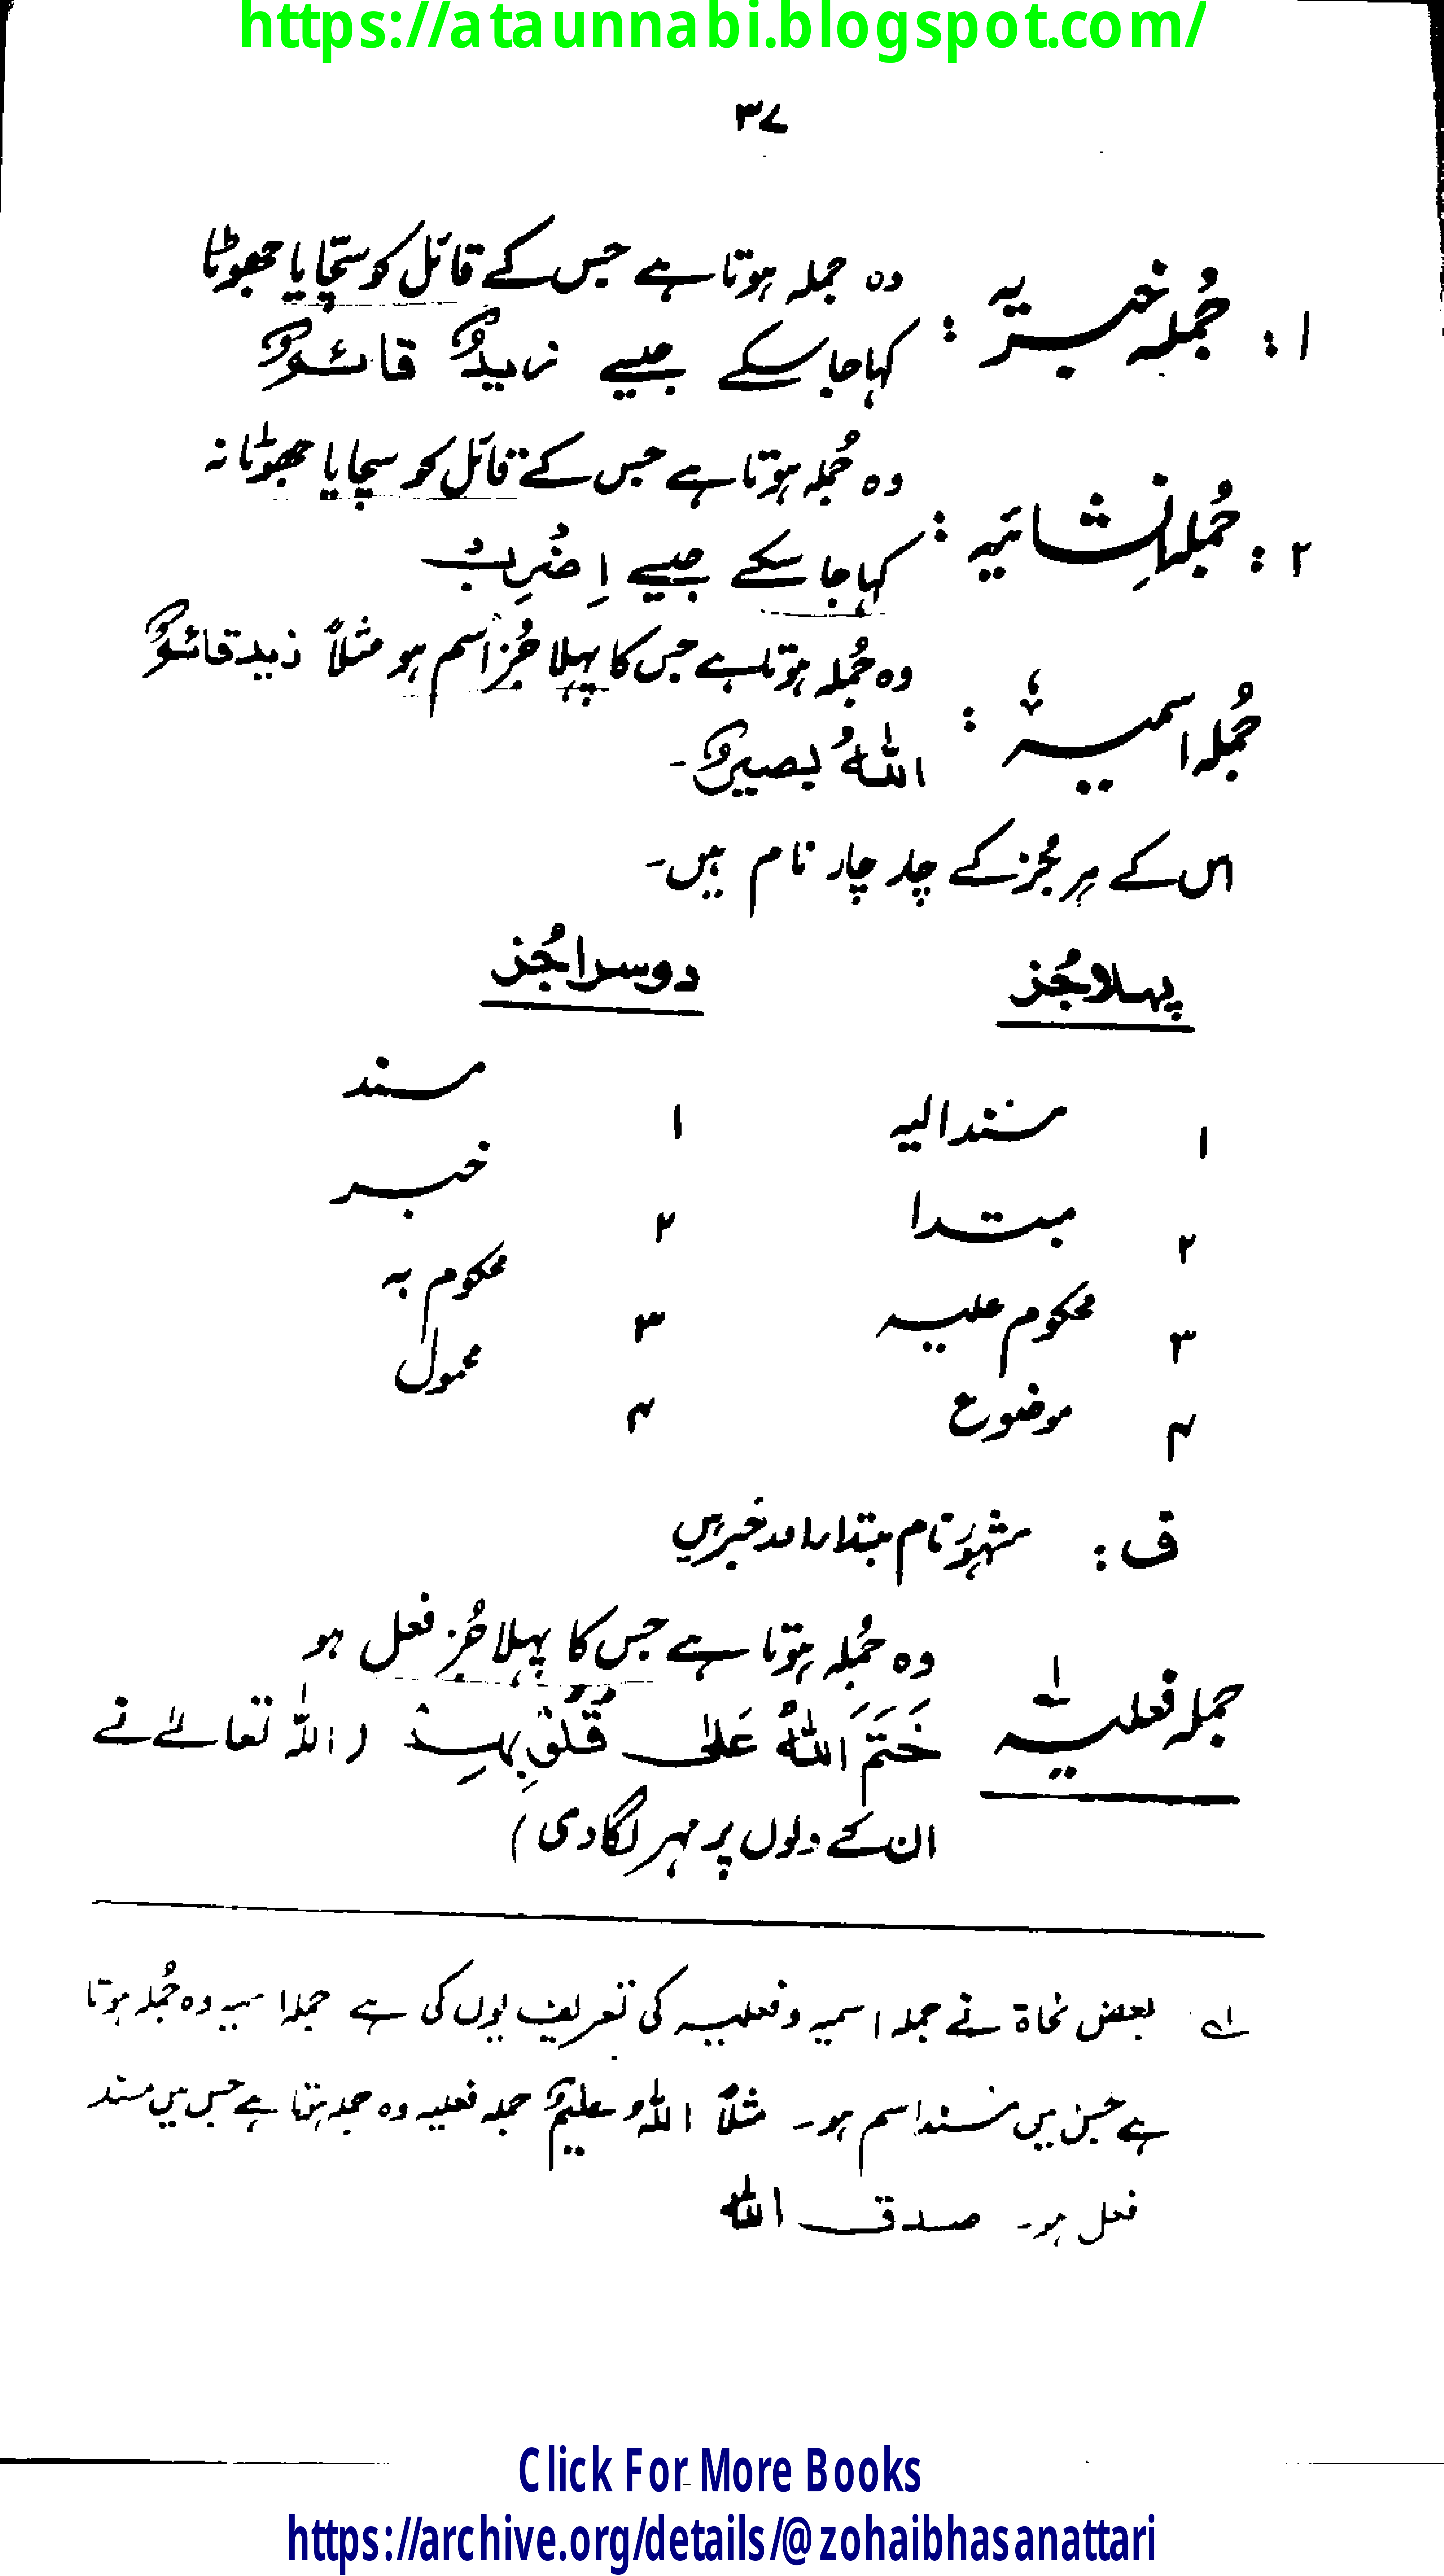 https://ataunnabi.blogspot.com/
٣٧
١ : جُملہ خبریہ : وہ جملہ ہوتا ہے جس کے قائل کو سچّا یا جھوٹا
کہا جا سکے جیسے زیدٌ قائمٌ
٢ : جُملہ اِنشائیہ : وہ جُملہ ہوتا ہے جس کے قائل کو سچا یا جھوٹا نہ
کہا جا سکے جیسے اِضْرِبْ
جُملہ اسمیہ : وہ جُملہ ہوتا ہے جس کا پہلا جُز اسم ہو مثلاً زید قائمٌ
اللہُ بصیرٌ۔
اس کے ہر جُز کے چار چار نام ہیں۔
پہلا جُز دوسرا جُز
١ مسند الیہ ١ مسند
٢ مبتدا ٢ خبر
٣ محکوم علیہ ٣ محکوم بہ
۴ موضوع ۴ محمول
ف : مشہور نام مبتدا اور خبر ہیں
جملہ فعلیہ لہ وہ جُملہ ہوتا ہے جس کا پہلا جُز فعل ہو
خَتَمَ اللّٰہُ عَلٰی قُلُوْبِہِمْ ( اللہ تعالےٰ نے
ان کے دلوں پر مہر لگا دی )
لہ بعض نحاۃ نے جملہ اسمیہ و فعلیہ کی تعریف یوں کی ہے جملہ اسمیہ وہ جُملہ ہوتا
ہے جس میں مسند اسم ہو۔ مثلاً اللہُ علیمٌ جملہ فعلیہ وہ جملہ ہوتا ہے جس میں مسند
فعل ہو۔ صدق اللہ
Click For More Books
https://archive.org/details/@zohaibhasanattari